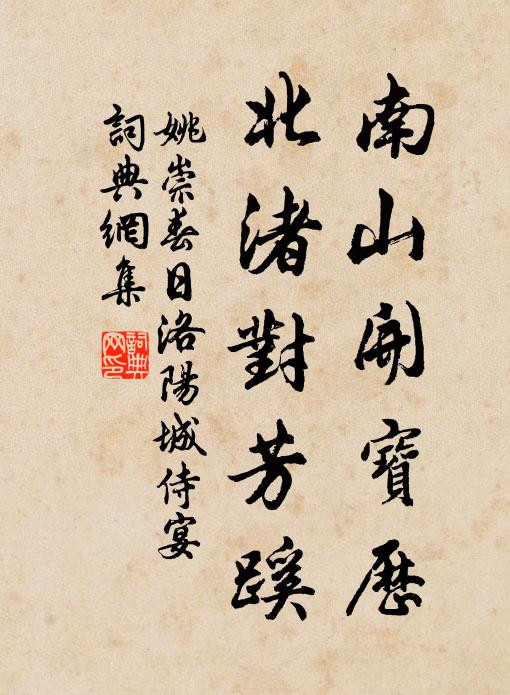 南山開寶歷
北渚對芳蹊
姚崇春日洛陽城侍宴
詞典網集
詞典網印